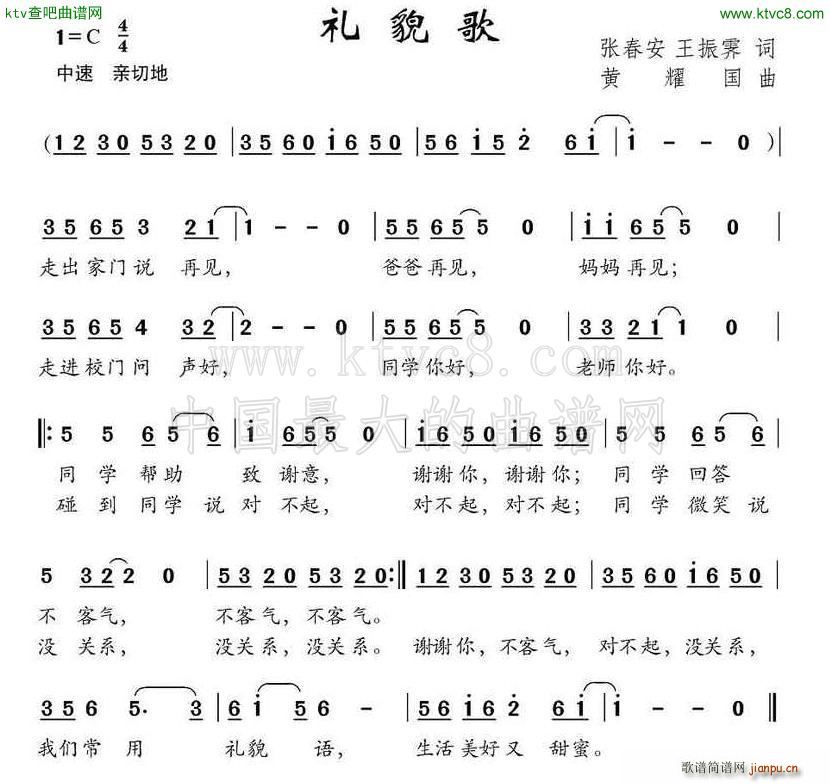 ktv查吧曲谱网
www.ktvc8.com
礼貌歌
1=C 4/4
中速 亲切地
张春安 王振霁 词
黄耀国 曲
(12 30 53 20 | 35 60 i6 50 | 56 i5 2̇ 6i | i - - 0 )|
35 65 3 21 | 1 - - 0 | 55 65 5 0 | ii 65 5 0 |
走出家门说 再见, 爸爸再见, 妈妈再见;
35 65 4 32 | 2 - - 0 | 55 65 5 0 | 33 21 1 0 |
走进校门问 声好, 同学你好, 老师你好。
www.ktvc8.com
中国最大的曲谱网
‖: 5 5 65 6 | i 65 5 0 | i6 50 i6 50 | 5 5 65 6 |
同 学 帮助 致 谢意, 谢谢你,谢谢你; 同 学 回答
碰 到 同学 说 对 不起, 对不起,对不起; 同 学 微笑 说
5 32 2 0 | 53 20 53 20 :‖ 12 30 53 20 | 35 60 i6 50 |
不 客气, 不客气,不客气。
没 关系, 没关系,没关系。 谢谢你,不客气, 对不起,没关系,
35 6 5. 3 | 6i 56 - | 56 i6 2̇ 6i | i - - 0 ‖
我们常 用 礼貌 语, 生活美好又 甜蜜。
歌谱简谱网
jianpu.cn